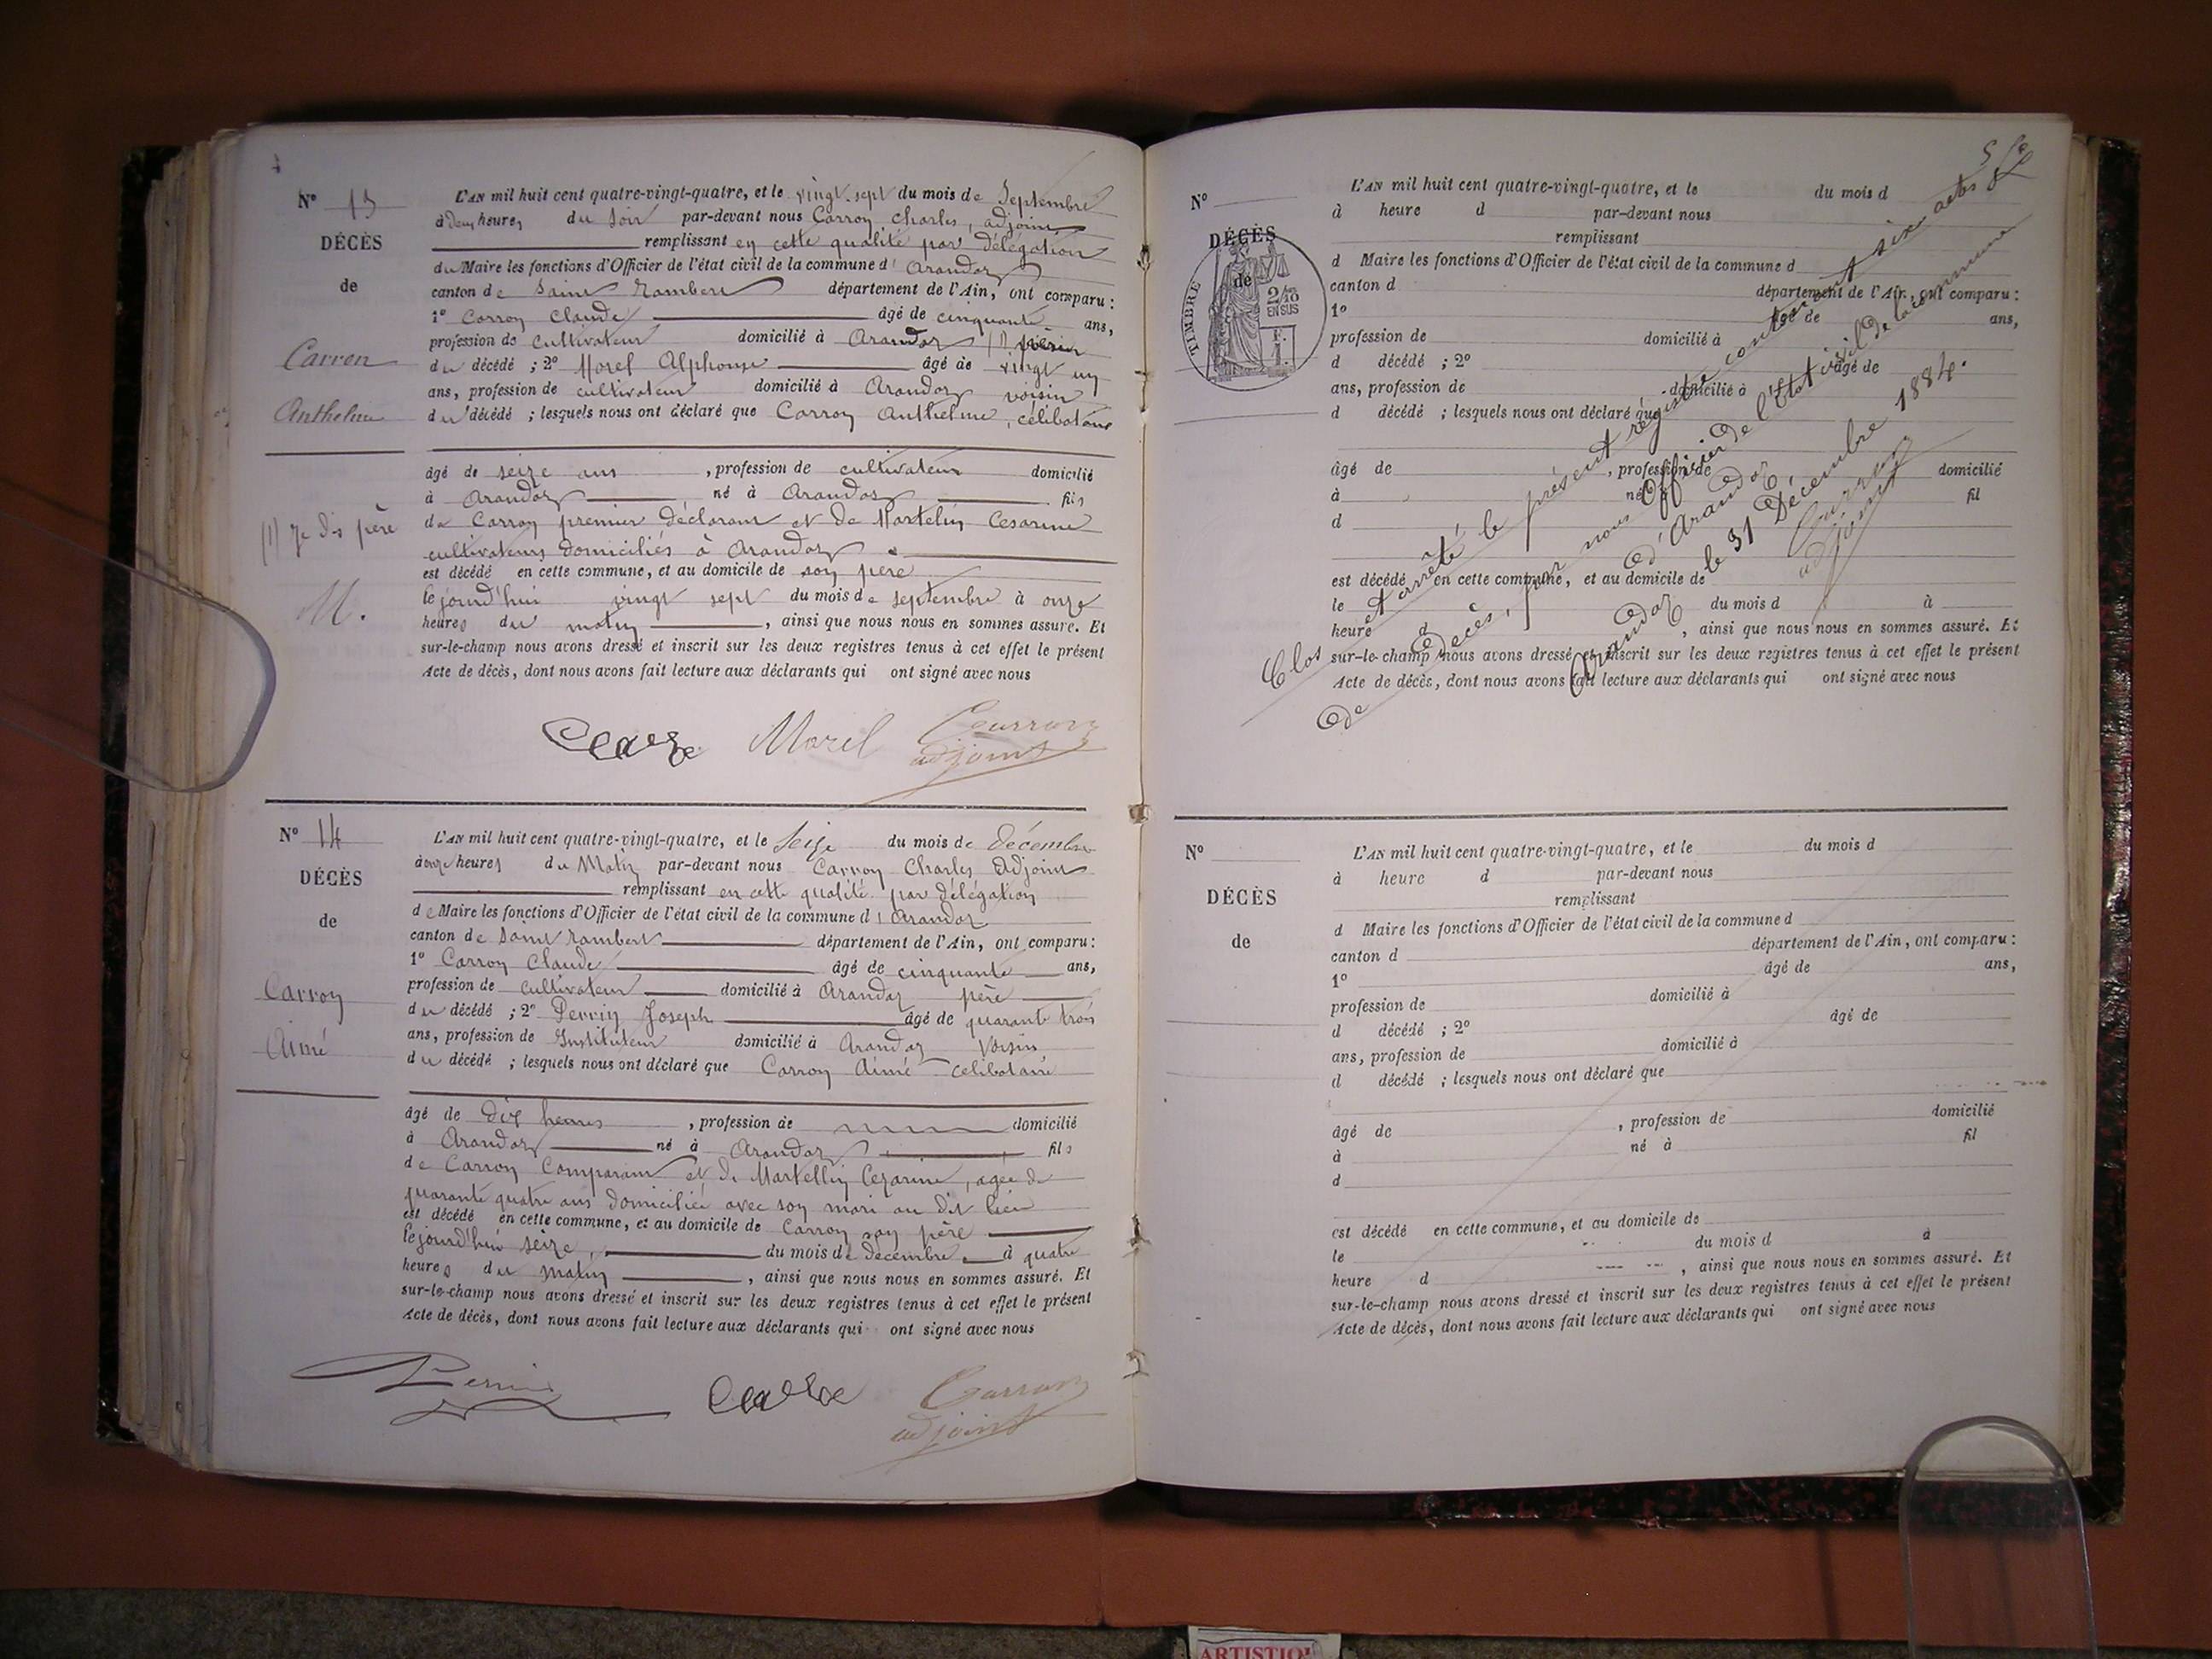 N° 13
DÉCÈS
de
Carron
Anthelme
(1) Je dis père
M.
L'AN mil huit cent quatre-vingt-quatre, et le vingt-sept du mois de Septembre
à deux heures du soir par-devant nous Carron Charles, adjoint
remplissant en cette qualité par délégation
du Maire les fonctions d'Officier de l'état civil de la commune d'Arandas
canton de Saint Rambert département de l'Ain, ont comparu :
1° Carron Claude âgé de cinquante ans,
profession de cultivateur domicilié à Arandas (1)
du décédé ; 2° Morel Alphonse âgé de vingt un
ans, profession de cultivateur domicilié à Arandas voisin
du décédé ; lesquels nous ont déclaré que Carron Anthelme, célibataire
âgé de seize ans , profession de cultivateur domicilié
à Arandas , né à Arandas fils
de Carron premier déclarant et de Martelin Cesarine
cultivateurs domiciliés à Arandas
est décédé en cette commune, et au domicile de son père
le jourd'hui vingt sept du mois de septembre à onze
heures du matin , ainsi que nous nous en sommes assuré. Et
sur-le-champ nous avons dressé et inscrit sur les deux registres tenus à cet effet le présent
Acte de décès, dont nous avons fait lecture aux déclarants qui ont signé avec nous
Morel Carron
adjoint
N° 14
DÉCÈS
de
Carron
Aimé
L'AN mil huit cent quatre-vingt-quatre, et le Seize du mois de Décembre
à onze heures du Matin par-devant nous Carron Charles Adjoint
remplissant en cette qualité par délégation
de Maire les fonctions d'Officier de l'état civil de la commune d'Arandas
canton de Saint Rambert département de l'Ain, ont comparu :
1° Carron Claude âgé de cinquante ans,
profession de cultivateur domicilié à Arandas père
du décédé ; 2° Perrin Joseph âgé de quarante trois
ans, profession de Instituteur domicilié à Arandas Voisin
du décédé ; lesquels nous ont déclaré que Carron Aimé célibataire
âgé de dix heures , profession de domicilié
à Arandas né à Arandas fils
de Carron Comparant et de Martellin Cezarine, agée de
quarante quatre ans domiciliée avec son mari au dit lieu
est décédé en cette commune, et au domicile de Carron son père
le jourd'hui seize, du mois de décembre à quatre
heures du matin , ainsi que nous nous en sommes assuré. Et
sur-le-champ nous avons dressé et inscrit sur les deux registres tenus à cet effet le présent
Acte de décès, dont nous avons fait lecture aux déclarants qui ont signé avec nous
Perrin Carron
adjoint
N°
DÉCÈS
de
TIMBRE
2/10
EN SUS
F.
1.
L'AN mil huit cent quatre-vingt-quatre, et le du mois d
à heure d par-devant nous
remplissant
d Maire les fonctions d'Officier de l'état civil de la commune d
canton d département de l'Ain, ont comparu :
1° âgé de ans,
profession de domicilié à
d décédé ; 2° âgé de
ans, profession de domicilié à
d décédé ; lesquels nous ont déclaré que
âgé de , profession de domicilié
à né à fil
d
est décédé en cette commune, et au domicile de
le du mois d à
heure d , ainsi que nous nous en sommes assuré. Et
sur-le-champ nous avons dressé et inscrit sur les deux registres tenus à cet effet le présent
Acte de décès, dont nous avons fait lecture aux déclarants qui ont signé avec nous
Clos et arrêté le présent registre contenant six actes
De Décès, par nous Officier de l'Etat civil de la commune
d'Arandas
Arandas le 31 Décembre 1884.
Carron
adjoint
N°
DÉCÈS
de
L'AN mil huit cent quatre-vingt-quatre, et le du mois d
à heure d par-devant nous
remplissant
d Maire les fonctions d'Officier de l'état civil de la commune d
canton d département de l'Ain, ont comparu :
1° âgé de ans,
profession de domicilié à
d décédé ; 2° âgé de
ans, profession de domicilié à
d décédé ; lesquels nous ont déclaré que
âgé de , profession de domicilié
à né à fil
d
est décédé en cette commune, et au domicile de
le du mois d à
heure d , ainsi que nous nous en sommes assuré. Et
sur-le-champ nous avons dressé et inscrit sur les deux registres tenus à cet effet le présent
Acte de décès, dont nous avons fait lecture aux déclarants qui ont signé avec nous